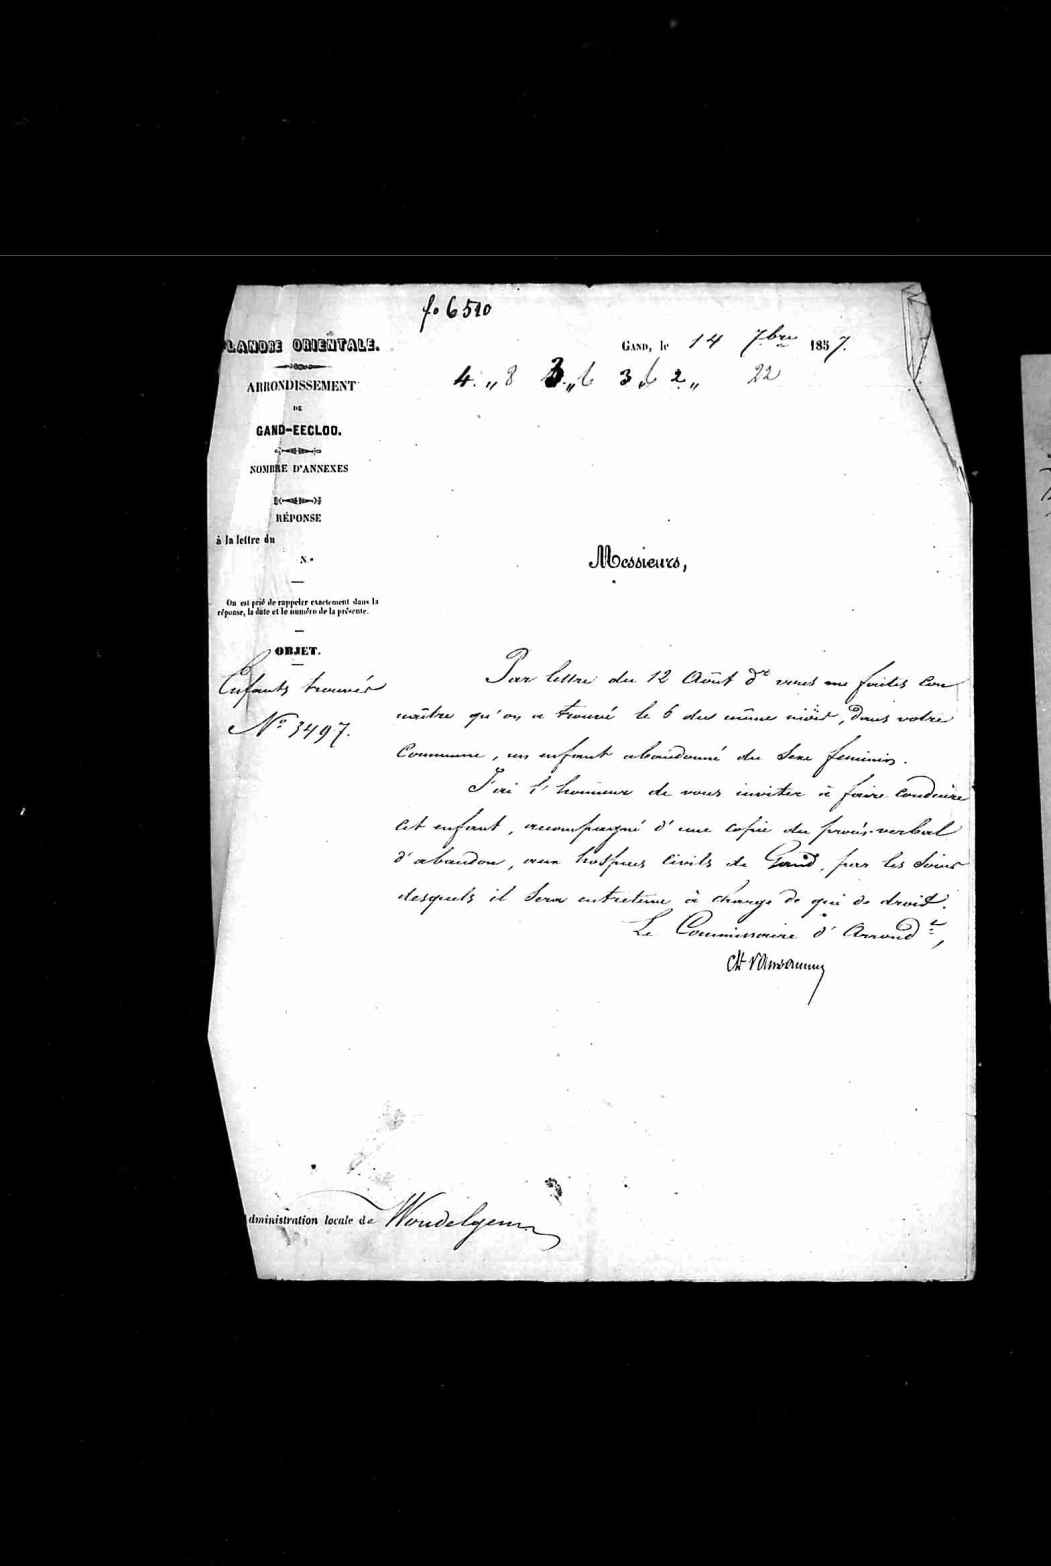 fo 6510
LANDRE ORIENTALE.
ARRONDISSEMENT
DE
GAND-EECLOO.
NOMBRE D'ANNEXES
RÉPONSE
à la lettre du
N.°
On est prié de rappeler exactement dans la
réponse, la date et le numéro de la présente.
OBJET.
Enfants trouvés
N° 3497.
GAND, le 14 7bre 1857.
4. „ 8 3. „ 6 3 „ 6 2 „ 22
Messieurs,
Par lettre du 12 Août dr vous me faites con
naître qu'on a trouvé le 6 du même mois, dans votre
Commune, un enfant abandonné du Sexe feminin.
J'ai l'honneur de vous inviter à faire conduire
cet enfant, accompagné d'une copie du procès-verbal
d'abandon, aux hospices Civils de Gand, par les Soins
desquels il Sera entretenu à charge de qui de droit.
Le Commissaire d'Arrondt,
dministration locale de Wondelgem